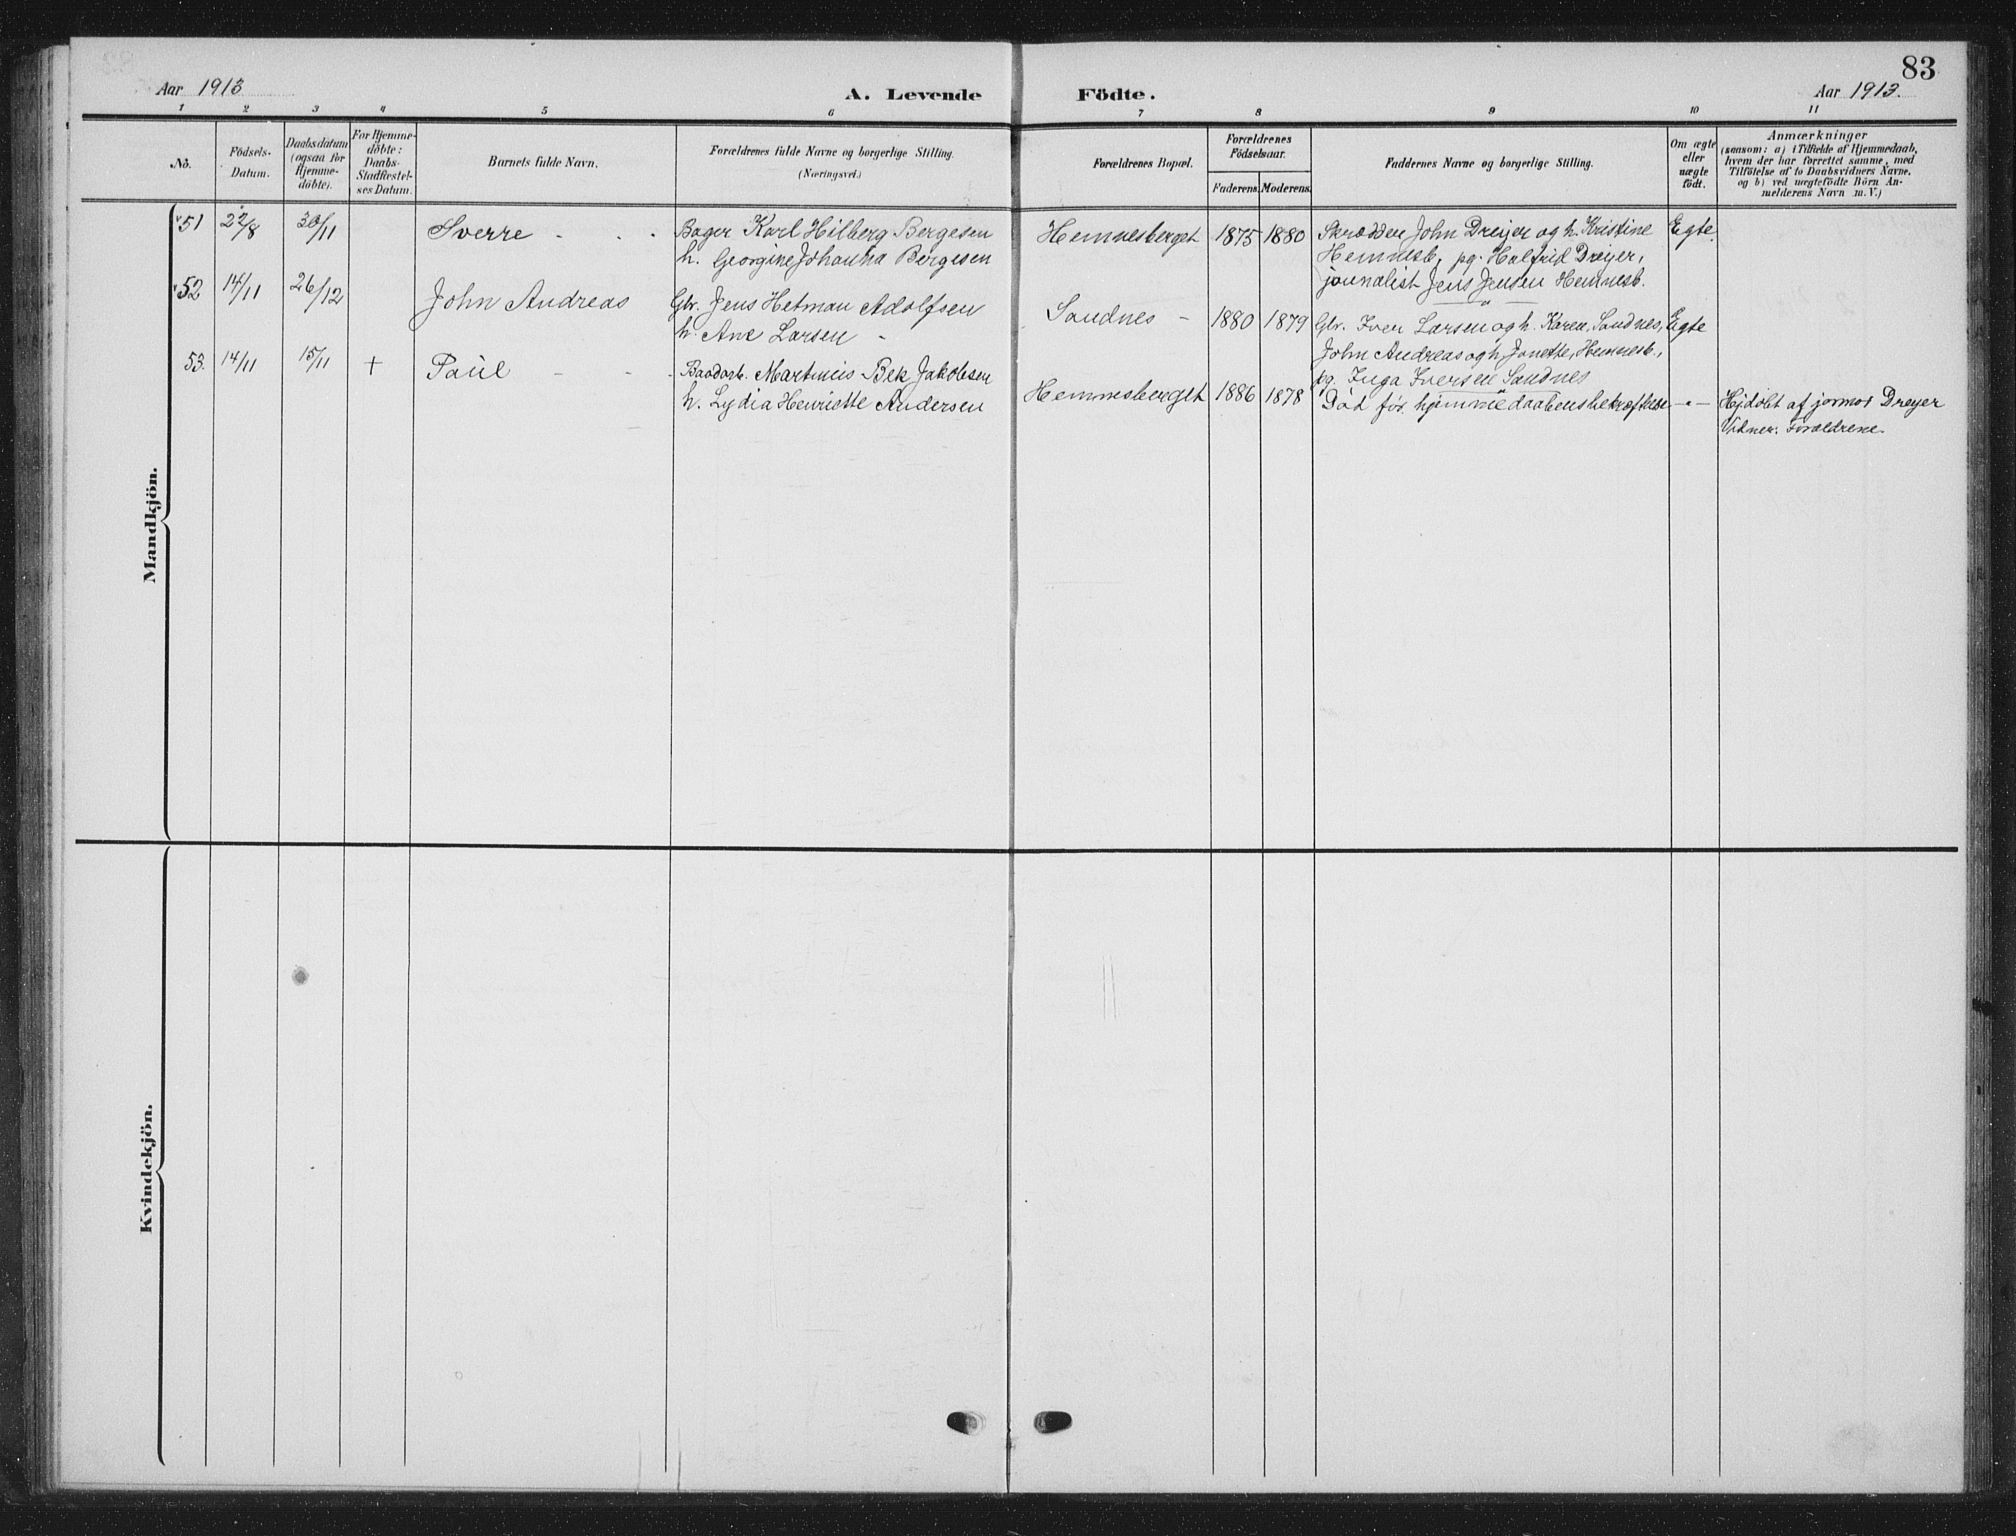 83
Aar 1913
A. Levende Födte.
Aar 1913.
1 2 3 4 5 6 7 8 9 10 11
No.
Födsels-
Datum.
Daabsdatum
(ogsaa for
Hjemme-
döbte).
For Hjemme-
döbte:
Daabs-
Stadfæstel-
ses Datum.
Barnets fulde Navn.
Forældrenes fulde Navne og borgerlige Stilling.
(Næringsvei.)
Forældrenes Bopæl.
Forældrenes
Födselsaar.
Faderens. Moderens.
Faddernes Navne og borgerlige Stilling.
Om ægte
eller
uægte
födt.
Anmærkninger
(saasom: a) i Tilfælde af Hjemmedaab,
hvem der har forrettet samme, med
Tilföielse af to Daabsvidners Navne,
og b) ved uægtefödte Börn An-
melderens Navn m. V.)
Mandkjön.
51 22/8 30/11 Sverre - - - Bager Karl Hilberg Bergesen
h. Georgine Johanna Bergesen
Hemnesberget 1875 1880 Skrædder John Dreijer og h. Kristine
Hemnesb, pg. Halfrid Dreijer,
journalist Jens Jensen Hemnesb.
Egte.
52 14/11 26/12 John Andreas Gbr. Jens Hetman Adolfsen
h. Ane Larsen -
Sandnes - 1880 1879 Gbr. Iver Larsen og h. Karen, Sandnes,
John Andreas og h. Jonette, Hemnesb.,
pg. Inga Iversen Sandnes
Egte
53. 14/11 15/11 + Paul - - - Baadarb. Martinius Bek Jakobsen
h. Lydia Henriette Andersen
Hemnesberget 1886 1878 Död för hjemmedaabens bekræftelse -"- Hjdöbt af jormor Dreyer
Vidner: Forældrene.
Kvindekjön.